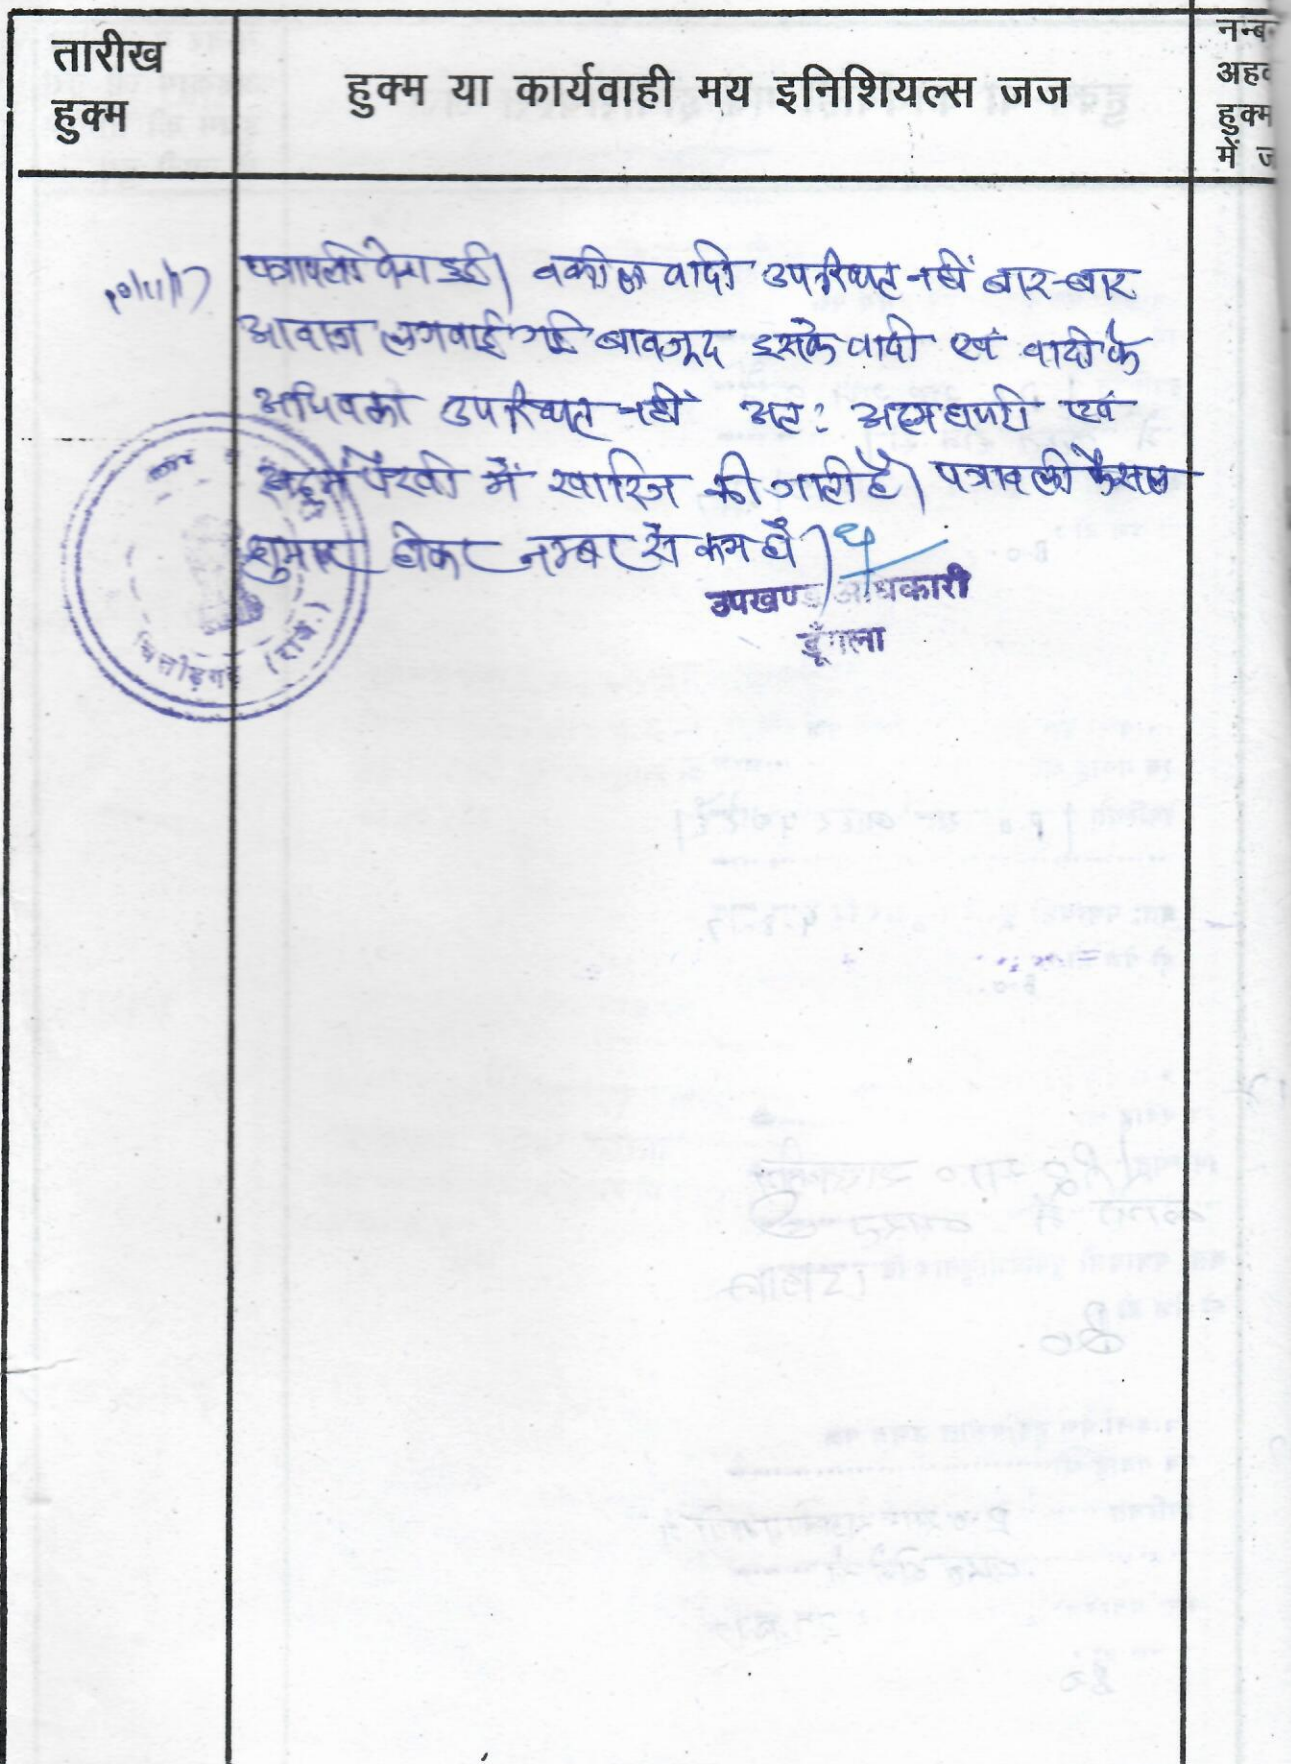 तारीख
हुक्म
हुक्म या कार्यवाही मय इनिशियल्स जज
नम्ब
अहव
हुक्म
में ज
पत्रावली पेश हुई। वकील वादी उपस्थित नहीं बार-बार
आवाज लगवाई गई बावजूद इसके वादी एवं वादी के
अधिवक्ता उपस्थित नहीं अतः अदम हाजरी एवं
अदम पैरवी में खारिज की जाती है। पत्रावली फैसल
शुमार होकर नम्बर से कम हो।
उपखण्ड अधिकारी
डूँगला
चित्तौड़गढ़ (राज.)